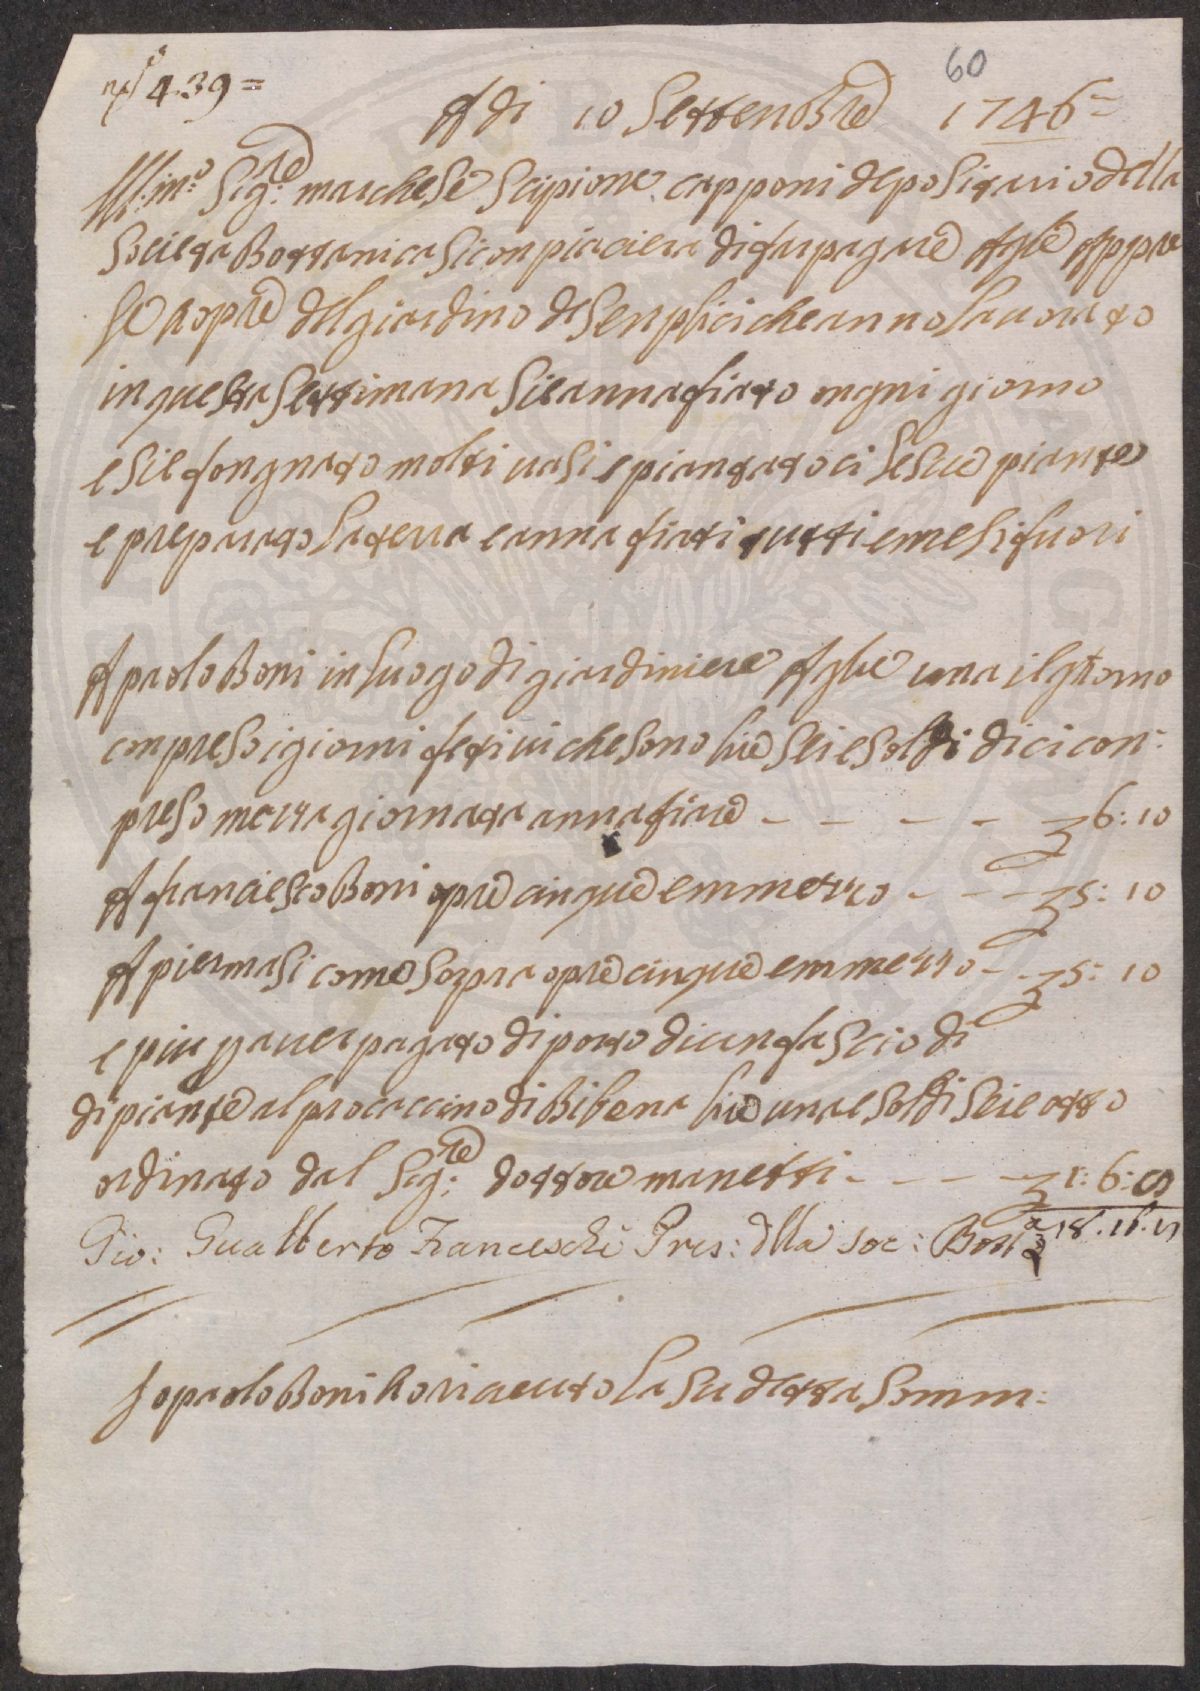 60
n.° 439=
A di 10 Settenbre 1746=
Ill:mo Sig:re marchese Scipione capponi depositario della
Societa Bottanica Si conpiaciera di far pagare Ale Appre
le hopre del giardino de Senplici che anno Lauorato
in questa Settimana Sie annafiato ongni giorno
e Sie fongnato molti uasi e piantatoci le Sue piante
e preparato la terra e annafiati tutti e mesi fuori
A paolo Boni in luogo di giardiniere A lire una il giorno
conpreso i giorni fetiui che sono lire Sei e Soldi dieci con:
preso mezza giornata annafiare - - - - 6:10
A franciesco Boni opre cinque e mmezzo - - - 5:10
A pier masi come Sopra opre cinque e mmezzo - - 5:10
e piu p auer pagato di porto di un fascio di
di piante al procaccino di Bibena lire una e Soldi Sei e otto
ordinato dal Sig:re dottore manetti - - - - 1:6:8
Gio: Gualberto Franceschi Pres: dlla Soc: Bott:a 18.16.8
Io paolo Boni ho riaeuto la Su detta Somm: